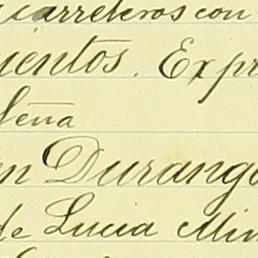 carreteros con
ientos. Expr
leña
n Durango
de Lucia Min